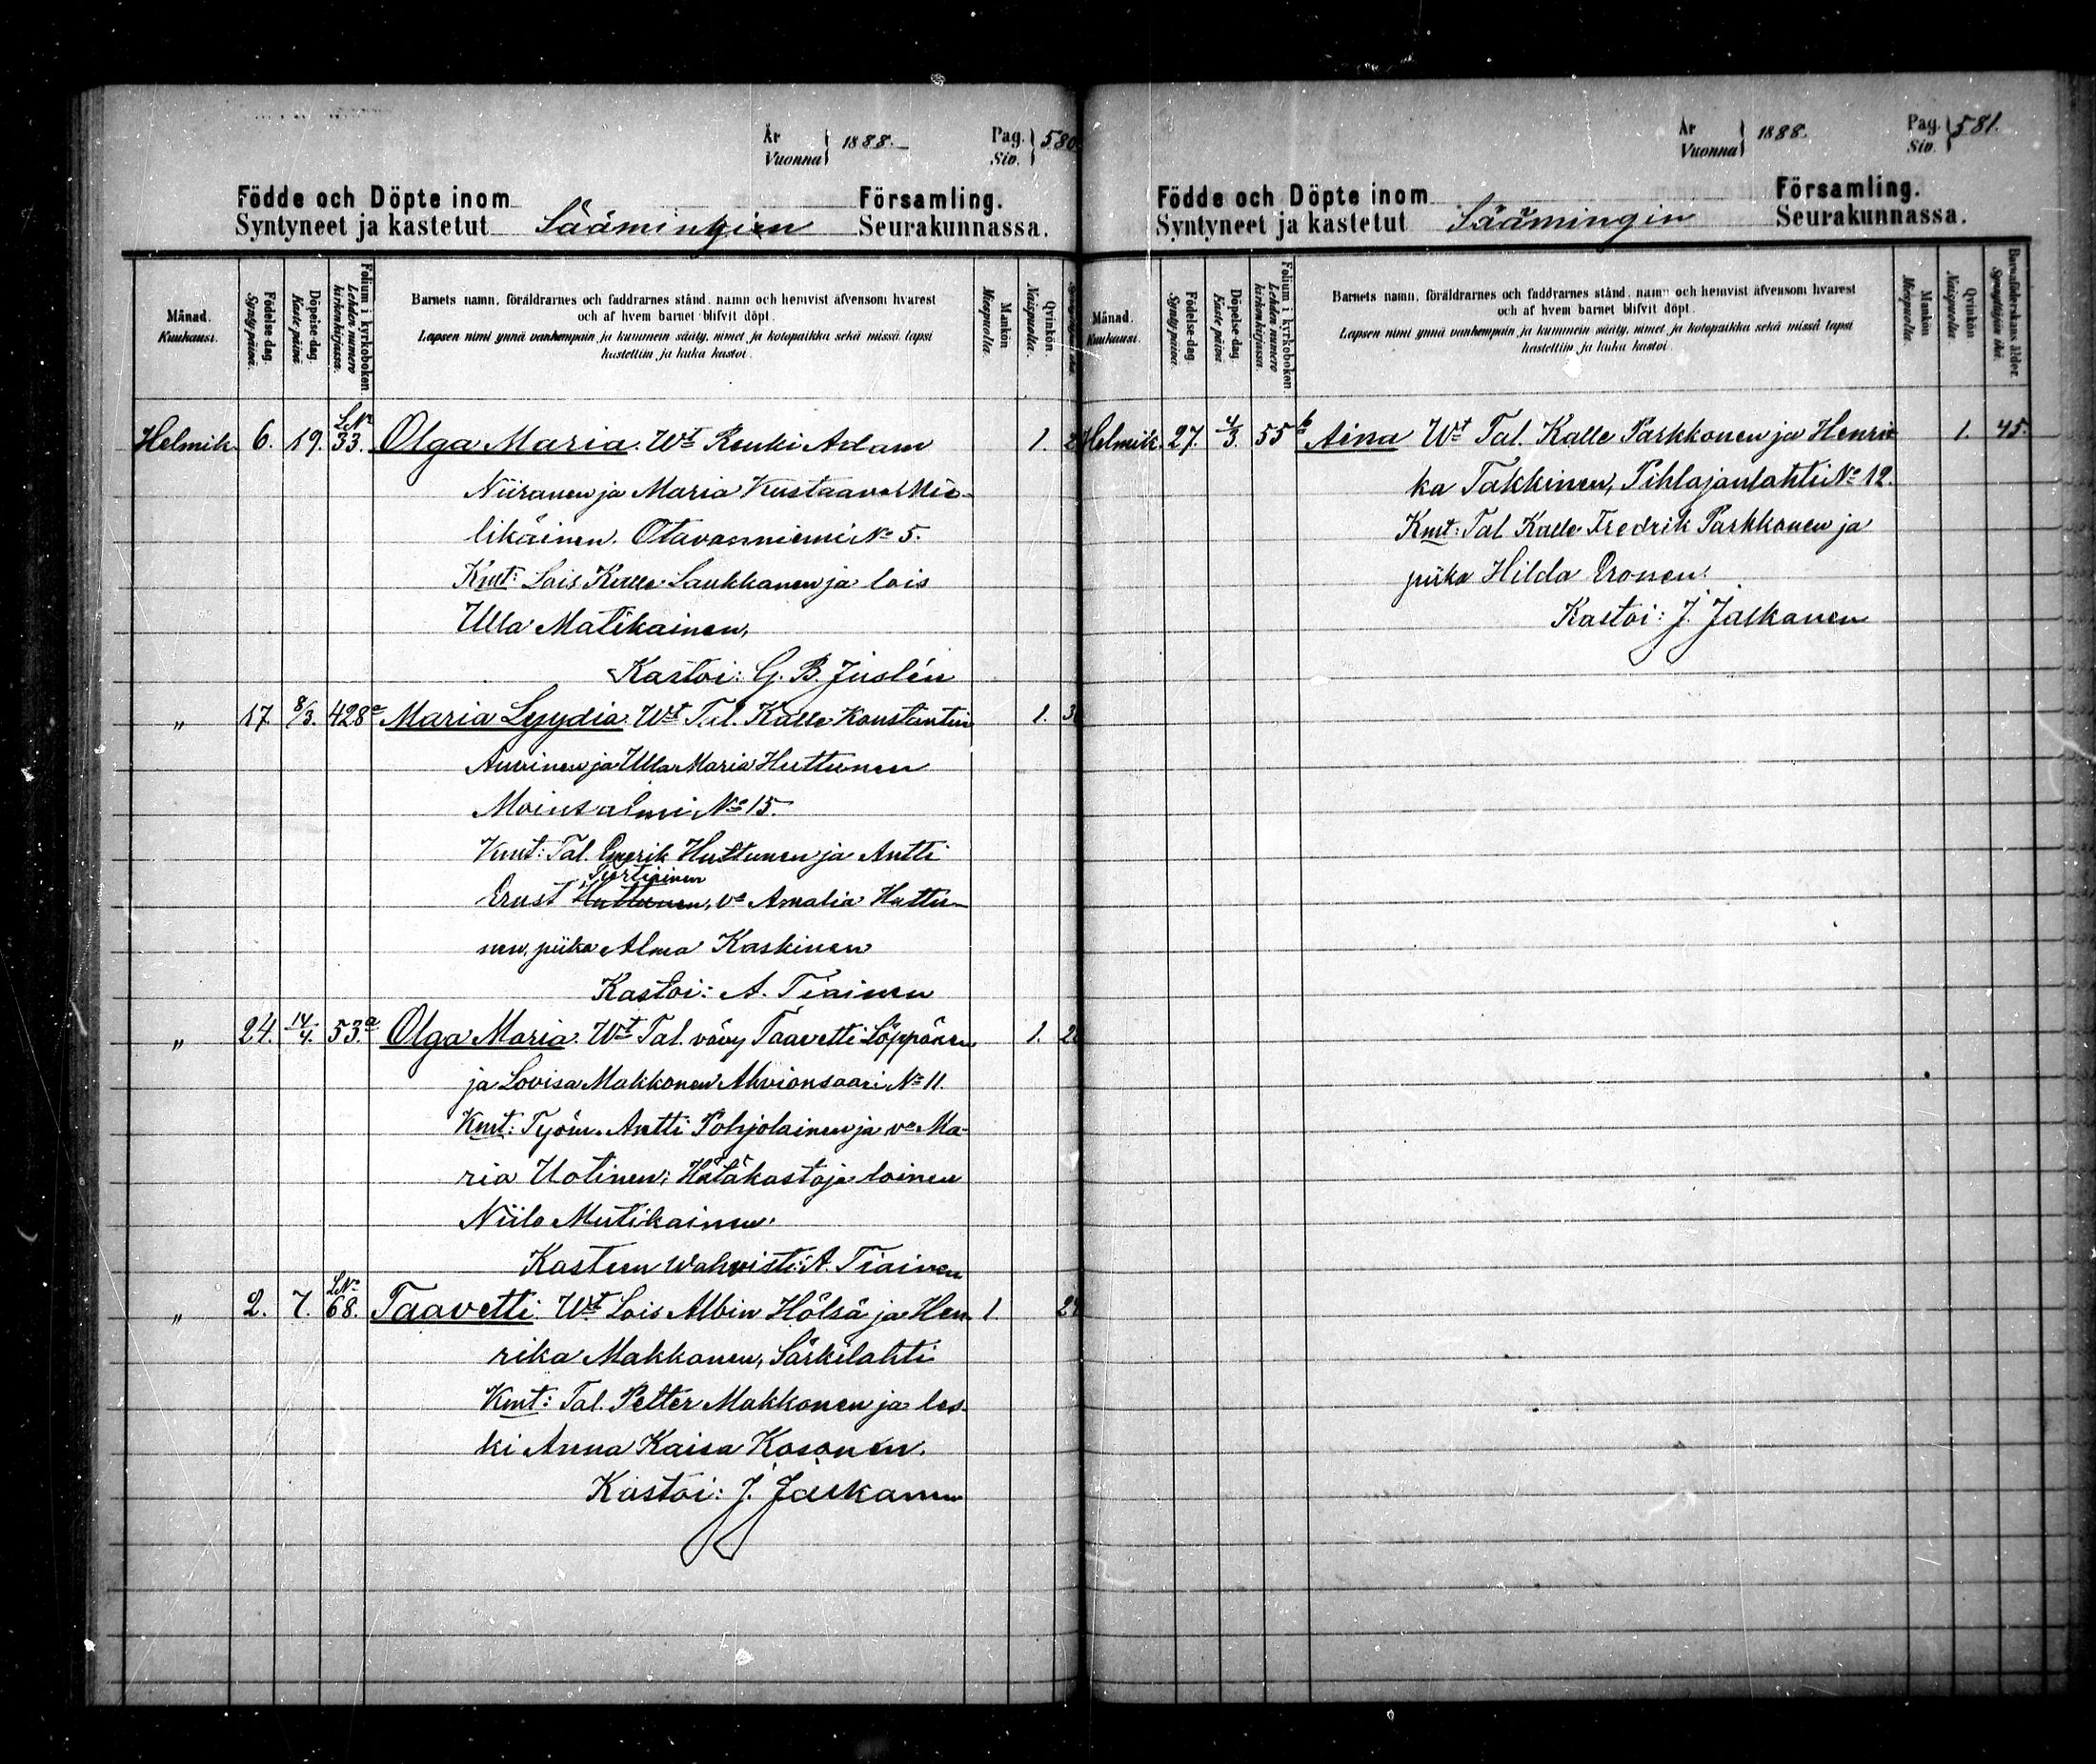 År
Vuonna } 1888. Pag. Siv. } 580
Födde och Döpte inom Församling.
Syntyneet ja kastetut Säämingin Seurakunnassa.
Månad. Kuukausi.
Födelse-dag. Synty-päivä.
Döpelse-dag. Kaste-päivä
Folium i kyrkoboken. Lehden numero kirkonkirjassa.
Barnets namn, föräldrarnes och faddrarnes stånd, namn och hemvist äfvensom hvarest
och af hvem barnet blifvit döpt.
Lapsen nimi ynnä vanhempain ja kummein sääty, nimet ja kotopaikka sekä missä lapsi
kastettiin ja kuka kastoi.
Mankön Miespuolia.
Qvinkön. Naispuolia.
Helmik. 6. 19. LNo 33. Olga Maria. Wt Renki Adam 1.
Niiranen ja Maria Kustaava Mie-
likäinen. Otavanniemi No 5.
Kmt: Lois Kalle Laukkanen ja lois
Ulla Matikainen,
Kastoi: G. B. Juslén
„ 17 8/3. 428 Maria Lyydia. Wt Tal. Kalle Konstantin 1.
Auvinen ja Ulla Maria Huttunen
Moinsalmi No 15.
Kmt: Tal. Enerik Huttunen ja Antti
Tiortiainen
Ernst Huttunen, vo Amalia Huttu-
nen, piika Alma Kaskinen
Kastoi: A. Tiainen
„ 24. 14/4. 53.a Olga Maria. Wt Tal. vävy Taavetti Löppönen 1.
ja Lovisa Makkonen Ahvionsaari No 11.
Kmt: Työm. Antti Pohjolainen ja vo Ma-
ria Uotinen; Hätäkastaja loinen
Niilo Mutikainen.
Kasteen wahvisti: A. Tiainen
„ 2. 7. LNo 68. Taavetti. Wt Lois Albin Hölsä ja Hen- 1.
rika Makkonen, Särkilahti
Kmt: Tal. Petter Makkonen ja les-
ki Anna Kaisa Kosonen.
Kastoi: J. Jalkanen
År
Vuonna } 1888. Pag. Siv. } 581.
Födde och Döpte inom Församling.
Syntyneet ja kastetut Säämingin Seurakunnassa.
Månad. Kuukausi.
Födelse-dag. Synty-päivä.
Döpelse-dag. Kaste-päivä
Folium i kyrkoboken. Lehden numero kirkonkirjassa.
Barnets namn, föräldrarnes och faddrarnes stånd, namn och hemvist äfvensom hvarest
och af hvem barnet blifvit döpt.
Lapsen nimi ynnä vanhempain ja kummein sääty, nimet ja kotopaikka sekä missä lapsi
kastettiin ja kuka kastoi.
Mankön Miespuolia
Qvinkön Naispuolia.
Barnaföderskans ålder. Synnyttäjän ikä.
Helmik. 27. 4/3. 55b Aina Wt Tal. Kalle Parkkonen ja Henrii- 1. 45.
ka Takkinen, Pihlajanlahti No 12.
Kmt: Tal Kalle Fredrik Parkkonen ja
piika Hilda Eronen.
Kastoi: J. Jalkanen